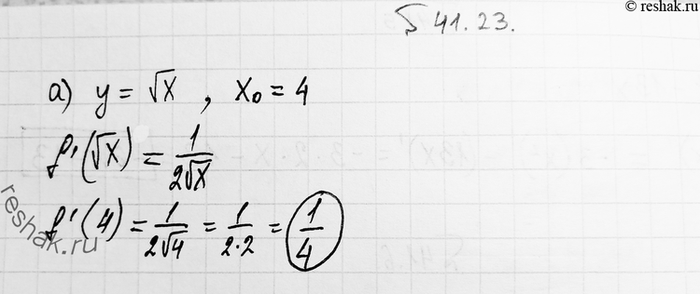 © reshak.ru
§ 41.23.
а) y = √x , x₀ = 4
f'(√x) = 1/(2√x)
f'(4) = 1/(2√4) = 1/(2·2) = 1/4
reshak.ru